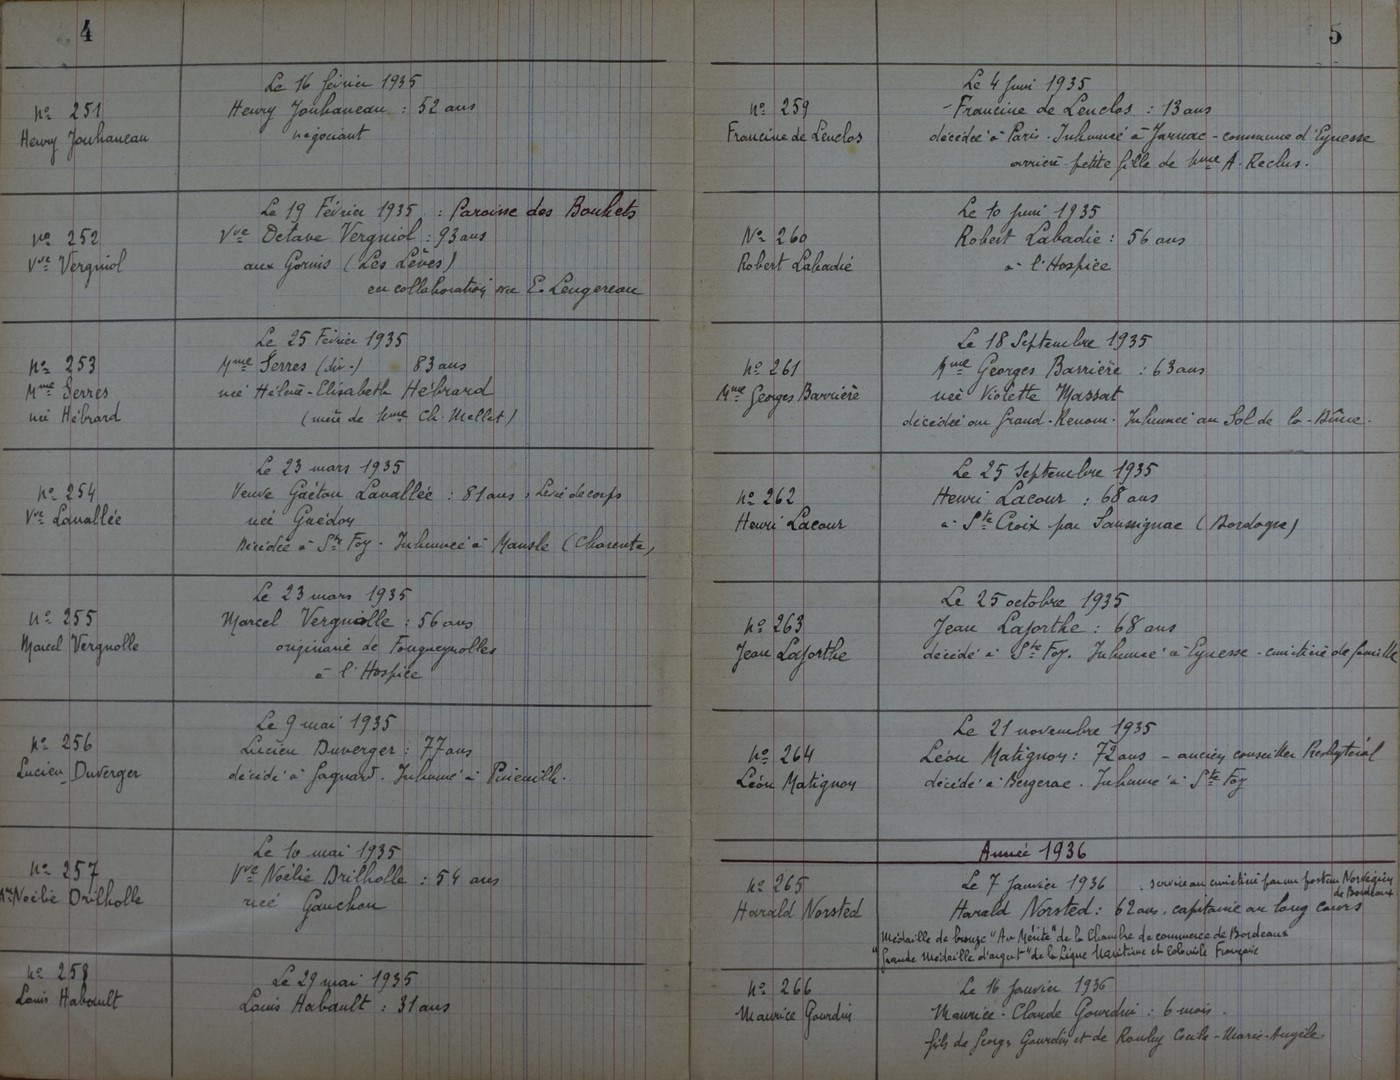 4
Le 16 février 1935
nº 251
Henry Jouhaneau : 52 ans
Henry Jouhaneau
négociant
Le 19 Février 1935 : Paroisse des Bouhets
nº 252
Vve Octave Vergniol : 93 ans
Vve Vergniol
aux Gornis (Les Lèves)
en collaboration avec E. Lengereau
Le 25 Février 1935
nº 253
Mme Serres (div.) 83 ans
Mme Serres
née Hélène-Elisabeth Hébrard
née Hébrard
(mère de Mme Ch. Mellet)
Le 23 mars 1935
nº 254
Veuve Gaétan Lavallée : 81 ans, Levée de corps
Vve Lavallée
née Guédon
Décédée à Ste Foy. Inhumée à Mansle (Charente)
Le 23 mars 1935
nº 255
Marcel Vergnolle : 56 ans
Marcel Vergnolle
originaire de Fougueyrolles
à l'Hospice
Le 9 mai 1935
nº 256
Lucien Duverger : 77 ans
Lucien Duverger
décédé à Gagnard. Inhumé à Pineuilh.
Le 10 mai 1935
nº 257
Vve Noélie Drilholle : 54 ans
Vve Noélie Drilholle
née Gauchou
nº 258
Le 29 mai 1935
Louis Habault
Louis Habault : 31 ans
5
Le 4 Juin 1935
nº 259
Francine de Lenclos : 13 ans
Francine de Lenclos
décédée à Paris. Inhumée à Jarnac - commune d'Eynesse
arrière-petite fille de Mme A. Reclus.
Le 10 juin 1935
Nº 260
Robert Labadie : 56 ans
Robert Labadie
à l'Hospice
Le 18 Septembre 1935
nº 261
Mme Georges Barrière : 63 ans
Mme Georges Barrière
née Violette Massat
décédée au Grand-Renom. Inhumée au Sol de la-Dîme.
Le 25 Septembre 1935
nº 262
Henri Lacour : 68 ans
Henri Lacour
à Ste Croix par Saussignac (Dordogne)
Le 25 octobre 1935
nº 263
Jean Laforthe : 68 ans
Jean Laforthe
décédé à Ste Foy. Inhumé à Eynesse - cimetière de famille
Le 21 novembre 1935
nº 264
Léon Matignon : 72 ans - ancien conseiller Presbytéral
Léon Matignon
décédé à Bergerac. Inhumé à Ste Foy
Année 1936
nº 265
Le 7 Janvier 1936. service au cimetière par un pasteur Norvégien
de Bordeaux
Harald Norsted
Harald Norsted : 62 ans, capitaine au long cours
Médaille de bronze "Au Mérite" de la Chambre de commerce de Bordeaux
"Grande Médaille d'argent" de la Ligue Maritime et Coloniale Française
nº 266
Le 16 Janvier 1936
Maurice Gourdin
Maurice-Claude Gourdin : 6 mois.
fils de Georges Gourdin et de Cécile-Marie-Angèle